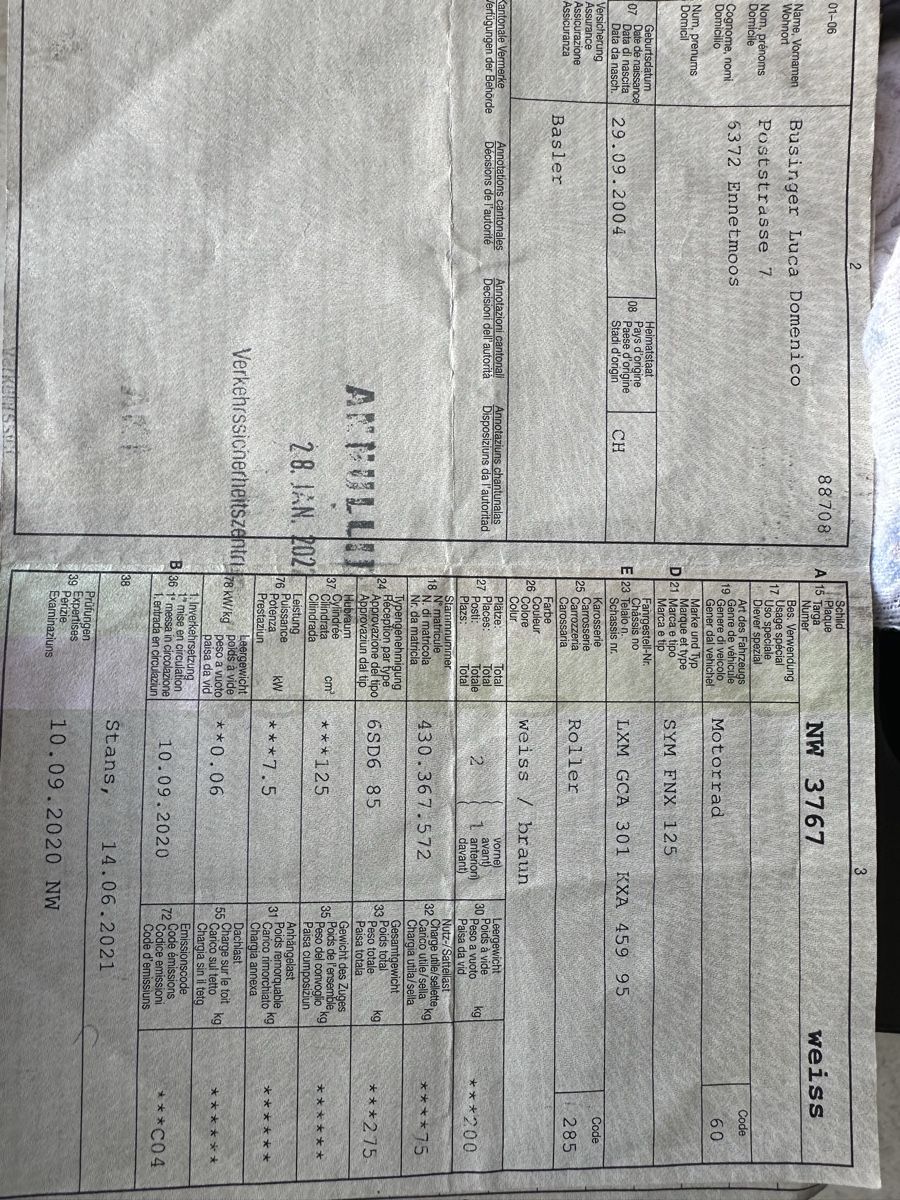 2
88708
01-06
Name, Vornamen
Wohnort
Nom, prénoms
Domicile
Cognome, nomi
Domicilio
Num, prenums
Domicil
Businger Luca Domenico
Poststrasse 7
6372 Ennetmoos
07
Geburtsdatum
Date de naissance
Data di nascita
Data da nasch.
29.09.2004
08
Heimatstaat
Pays d'origine
Paese d'origine
Stadi d'origin
CH
Versicherung
Assurance
Assicurazione
Assicuranza
Basler
Kantonale Vermerke
Verfügungen der Behörde
Annotations cantonales
Décisions de l'autorité
Annotazioni cantonali
Decisioni dell'autorità
Annotaziuns chantunalas
Disposiziuns da l'autoritad
28. JAN. 202
Verkehrssicherheitszentru
3
A
15
Schild
Plaque
Targa
Numer
NW 3767
weiss
17
Bes. Verwendung
Usage spécial
Uso speciale
Dover spezial
19
Art des Fahrzeugs
Genre de véhicule
Genere di veicolo
Gener dal vehichel
Motorrad
Code
60
D
21
Marke und Typ
Marque et type
Marca e tipo
Marca e tip
SYM FNX 125
E
23
Fahrgestell-Nr.
Châssis no
Telaio n.
Schassis nr.
LXM GCA 301 KXA 459 95
25
Karosserie
Carrosserie
Carrozzeria
Carrossaria
Roller
Code
285
26
Farbe
Couleur
Colore
Colur
weiss / braun
27
Plätze Total
Places Total
Posti: Totale
Plazs: Total
2
1
vorne)
avant)
anteriori)
davant)
30
Leergewicht
Poids à vide
Peso a vuoto
Paisa da vid
kg
***200
18
Stammnummer
N° matricule
N. di matricola
Nr. da matricla
430.367.572
32
Nutz-/Sattellast
Charge utile/sellette
Carico utile/sella
Chargia utila/sella
kg
****75
24
Typengenehmigung
Réception par type
Approvazione del tipo
Approvaziun dal tip
6SD6 85
33
Gesamtgewicht
Poids total
Peso totale
Paisa totala
kg
***275
37
Hubraum
Cylindrée
Cilindrata
Cilindrada
cm³
***125
35
Gewicht des Zuges
Poids de l'ensemble
Peso del convoglio
Paisa cumposiziun
kg
******
76
Leistung
Puissance
Potenza
Prestaziun
kW
***7.5
31
Anhängelast
Poids remorquable
Carico rimorchiato
Chargia annexa
kg
******
78 kW/kg
Leergewicht
poids à vide
peso a vuoto
paisa da vid
**0.06
55
Dachlast
Charge sur le toit
Carico sul tetto
Chargia sin il tetg
kg
******
B
36
1. Inverkehrsetzung
1re mise en circulation
1a messa in circolazione
1. entrada en circulaziun
10.09.2020
72
Emissionscode
Code émissions
Codice emissioni
Code d'emissiuns
***C04
38
Stans, 14.06.2021
39
Prüfungen
Expertises
Perizie
Examinaziuns
10.09.2020 NW